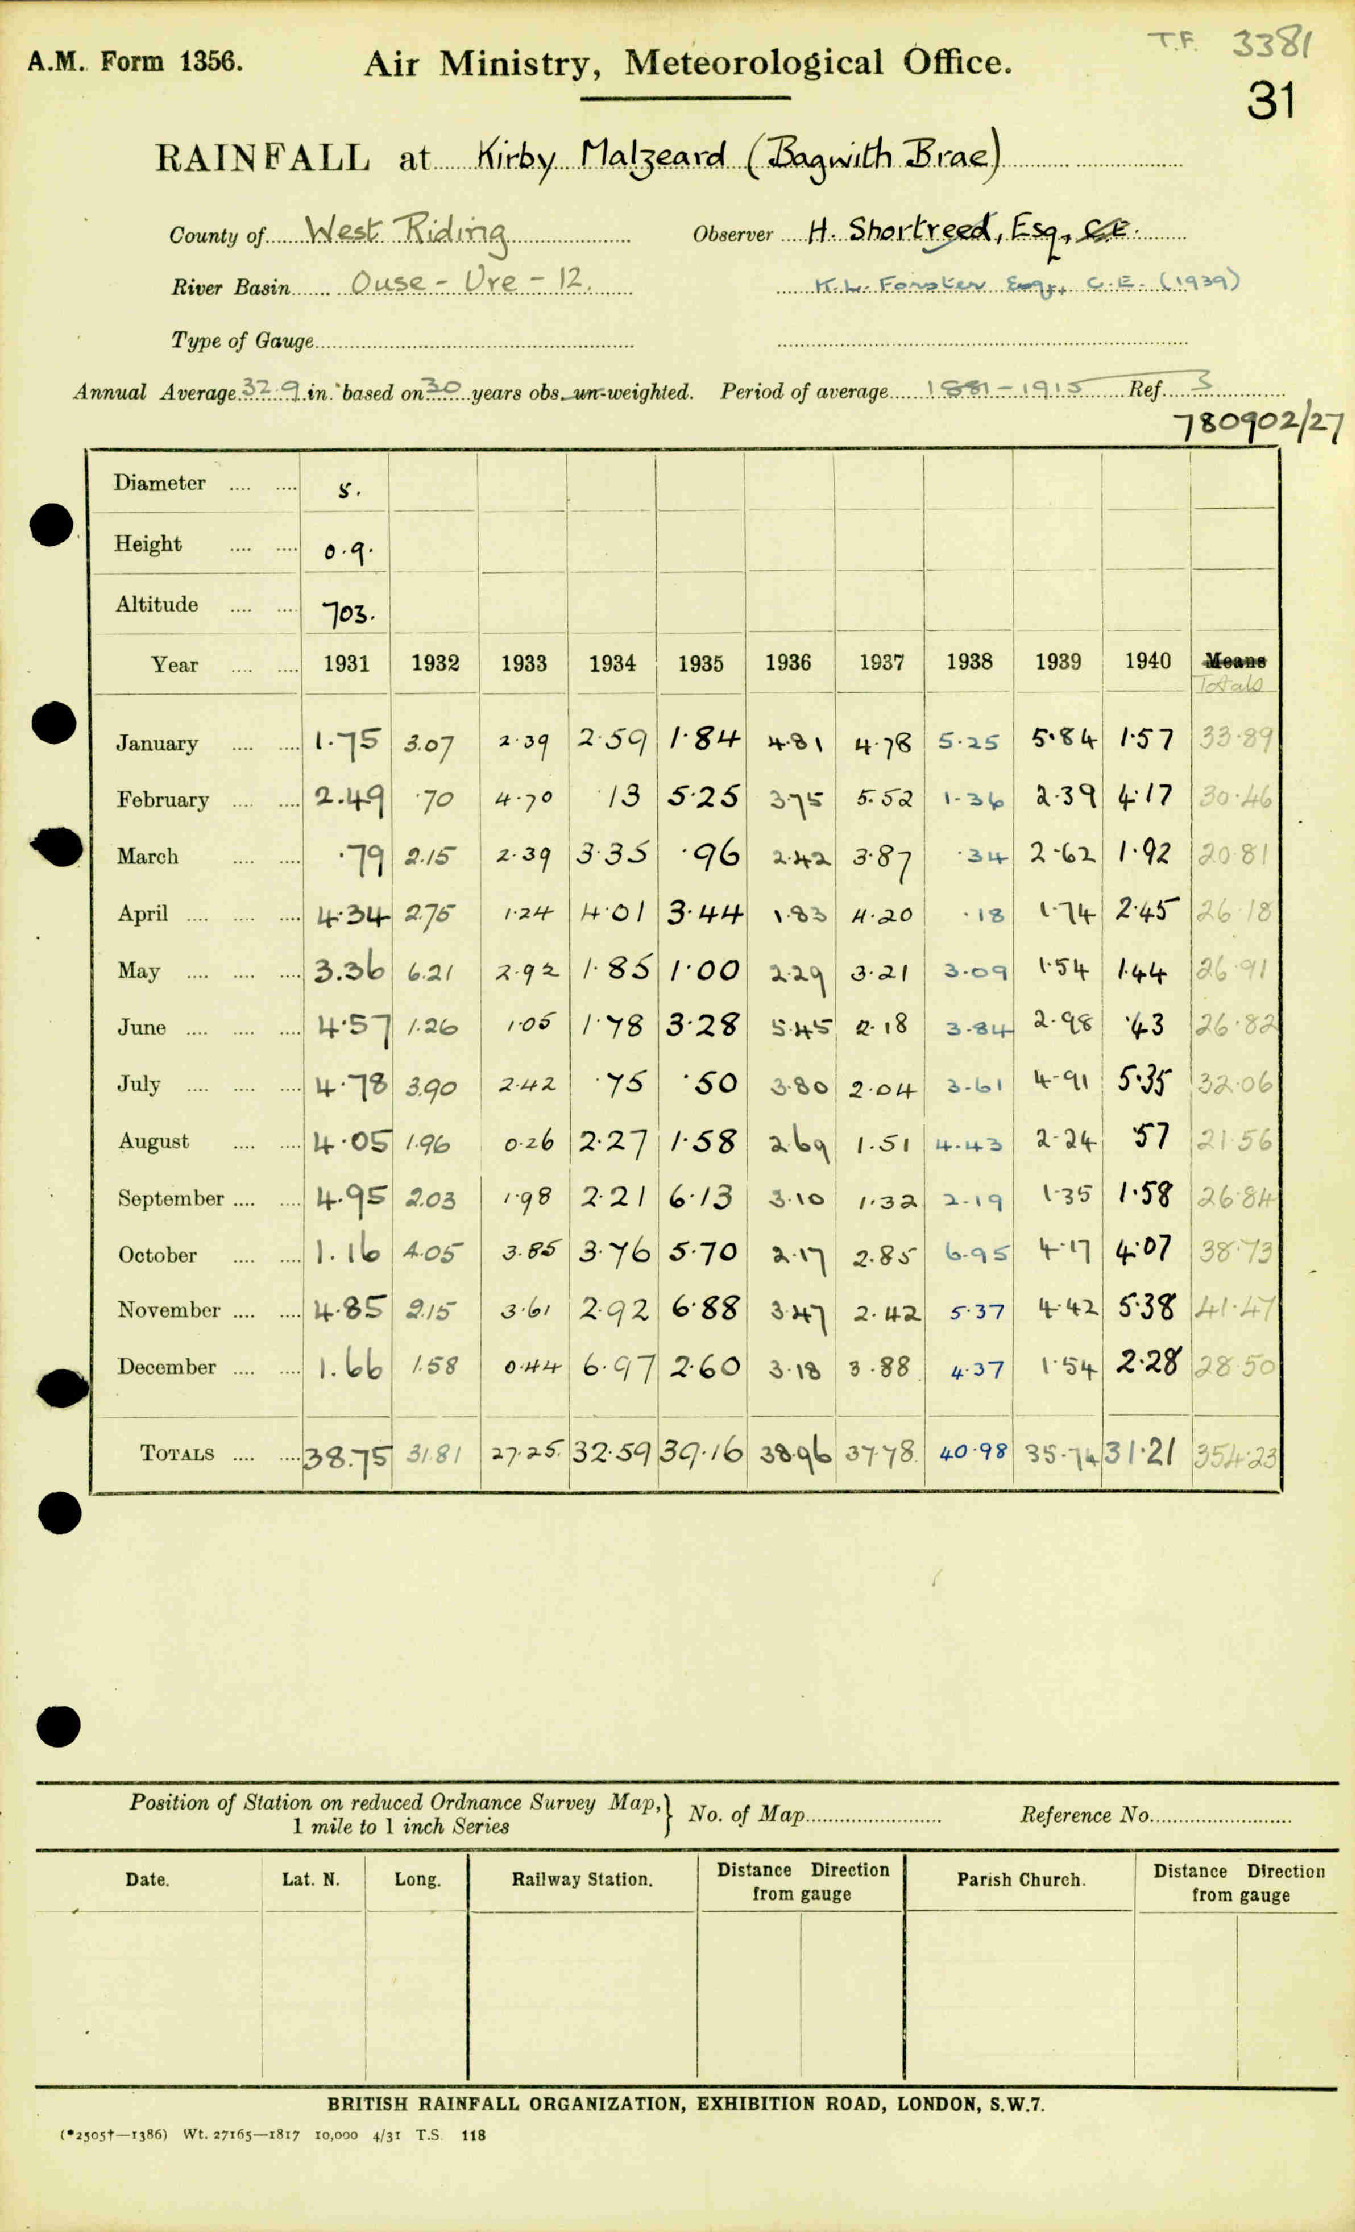 T.F. 3381
A.M. Form 1356. Air Ministry, Meteorological Office.
31
RAINFALL at Kirby Malzeard (Bagwith Brae)
County of West Riding Observer H. Shortreed, Esq., C.E.
River Basin Ouse - Ure - 12. K.L. Forster Esq., C.E. (1939)
Type of Gauge
Annual Average 32.9 in. based on 30 years obs. un-weighted. Period of average 1881-1915 Ref. 3
780902/27
Diameter 5.
Height 0.9.
Altitude 703.
Year 1931 1932 1933 1934 1935 1936 1937 1938 1939 1940 Means
Totals
January 1.75 3.07 2.39 2.59 1.84 4.81 4.78 5.25 5.84 1.57 33.89
February 2.49 .70 4.70 .13 5.25 3.75 5.52 1.36 2.39 4.17 30.46
March .79 2.15 2.39 3.35 .96 2.42 3.87 .34 2.62 1.92 20.81
April 4.34 2.75 1.24 4.01 3.44 1.83 4.20 .18 1.74 2.45 26.18
May 3.36 6.21 2.92 1.85 1.00 2.29 3.21 3.09 1.54 1.44 26.91
June 4.57 1.26 1.05 1.78 3.28 5.45 2.18 3.84 2.98 .43 26.82
July 4.78 3.90 2.42 .75 .50 3.80 2.04 3.61 4.91 5.35 32.06
August 4.05 1.96 0.26 2.27 1.58 2.69 1.51 4.43 2.24 .57 21.56
September 4.95 2.03 1.98 2.21 6.13 3.10 1.32 2.19 1.35 1.58 26.84
October 1.16 4.05 3.85 3.76 5.70 2.17 2.85 6.95 4.17 4.07 38.73
November 4.85 2.15 3.61 2.92 6.88 3.47 2.42 5.37 4.42 5.38 41.47
December 1.66 1.58 0.44 6.97 2.60 3.18 3.88 4.37 1.54 2.28 28.50
TOTALS 38.75 31.81 27.25 32.59 39.16 38.96 37.78 40.98 35.74 31.21 354.23
Position of Station on reduced Ordnance Survey Map, No. of Map Reference No.
1 mile to 1 inch Series
Date. Lat. N. Long. Railway Station. Distance Direction from gauge Parish Church. Distance Direction from gauge
BRITISH RAINFALL ORGANIZATION, EXHIBITION ROAD, LONDON, S.W.7.
(*2505†—1386) Wt. 27165—1817 10,000 4/31 T.S. 118